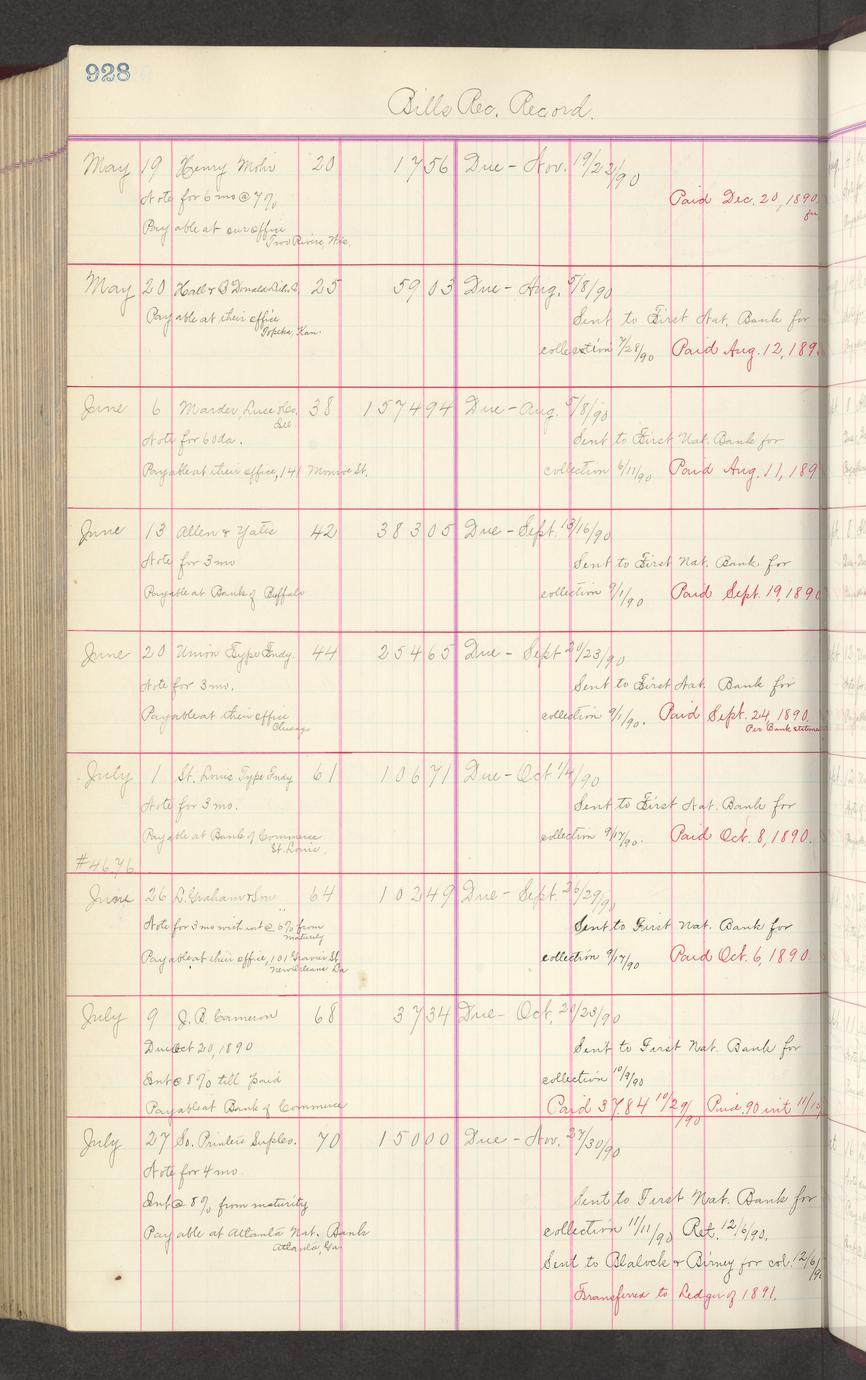 928
Bills Rec. Record.
May 19 Henry Mohr 20 1756 Due - Nov. 19/22/90
Note for 6 mo @ 7% Paid Dec. 20, 1890
Payable at our office
Two Rivers, Wis.
May 20 Hall & O'Donald Litho. Co. 25 5903 Due - Aug. 5/8/90
Payable at their office Sent to First Nat. Bank for
Topeka, Kan.
collection 7/28/90 Paid Aug. 12, 189
June 6 Marder, Luse & Co. 38 157494 Due - Aug. 5/8/90
Note for 60 da. Sent to First Nat. Bank for
Payable at their office, 141 Monroe St. collection 6/11/90 Paid Aug. 11, 189
June 13 Allen & Yates 42 38305 Due - Sept. 13/16/90
Note for 3 mo Sent to First Nat. Bank for
Payable at Bank of Buffalo collection 9/1/90 Paid Sept. 19, 1890
June 20 Union Type Fndy. 44 25465 Due - Sept 20/23/90
Note for 3 mo. Sent to First Nat. Bank for
Payable at their office collection 9/1/90. Paid Sept. 24, 1890.
Chicago Per Bank statement
July 1 St. Louis Type Fndy 61 10671 Due - Oct 1/4/90
Note for 3 mo. Sent to First Nat. Bank for
Payable at Bank of Commerce collection 9/17/90. Paid Oct. 8, 1890.
St. Louis.
#4676
June 26 L. Graham & Son 64 10249 Due - Sept. 26/29/90
Note for 3 mo with int @ 6% from Sent to First Nat. Bank for
maturity
Payable at their office, 101 Gravier St. collection 9/17/90 Paid Oct. 6, 1890
New Orleans La
July 9 J. B. Cameron 68 3734 Due - Oct. 20/23/90
Due Oct 20, 1890 Sent to First Nat. Bank for
Int @ 8% till paid collection 10/9/90
Payable at Bank of Commerce Paid 37.84 10/29/90 Paid .90 int 11/10
July 27 So. Printers Sup. Co. 70 15000 Due - Nov. 27/30/90
Note for 4 mo.
Int @ 8% from maturity Sent to First Nat. Bank for
Payable at Atlanta Nat. Bank collection 11/11/90 Ret. 12/6/90.
Atlanta, Ga.
Sent to Blalock & Birney for col. 12/6/90
Transferred to Ledger of 1891.